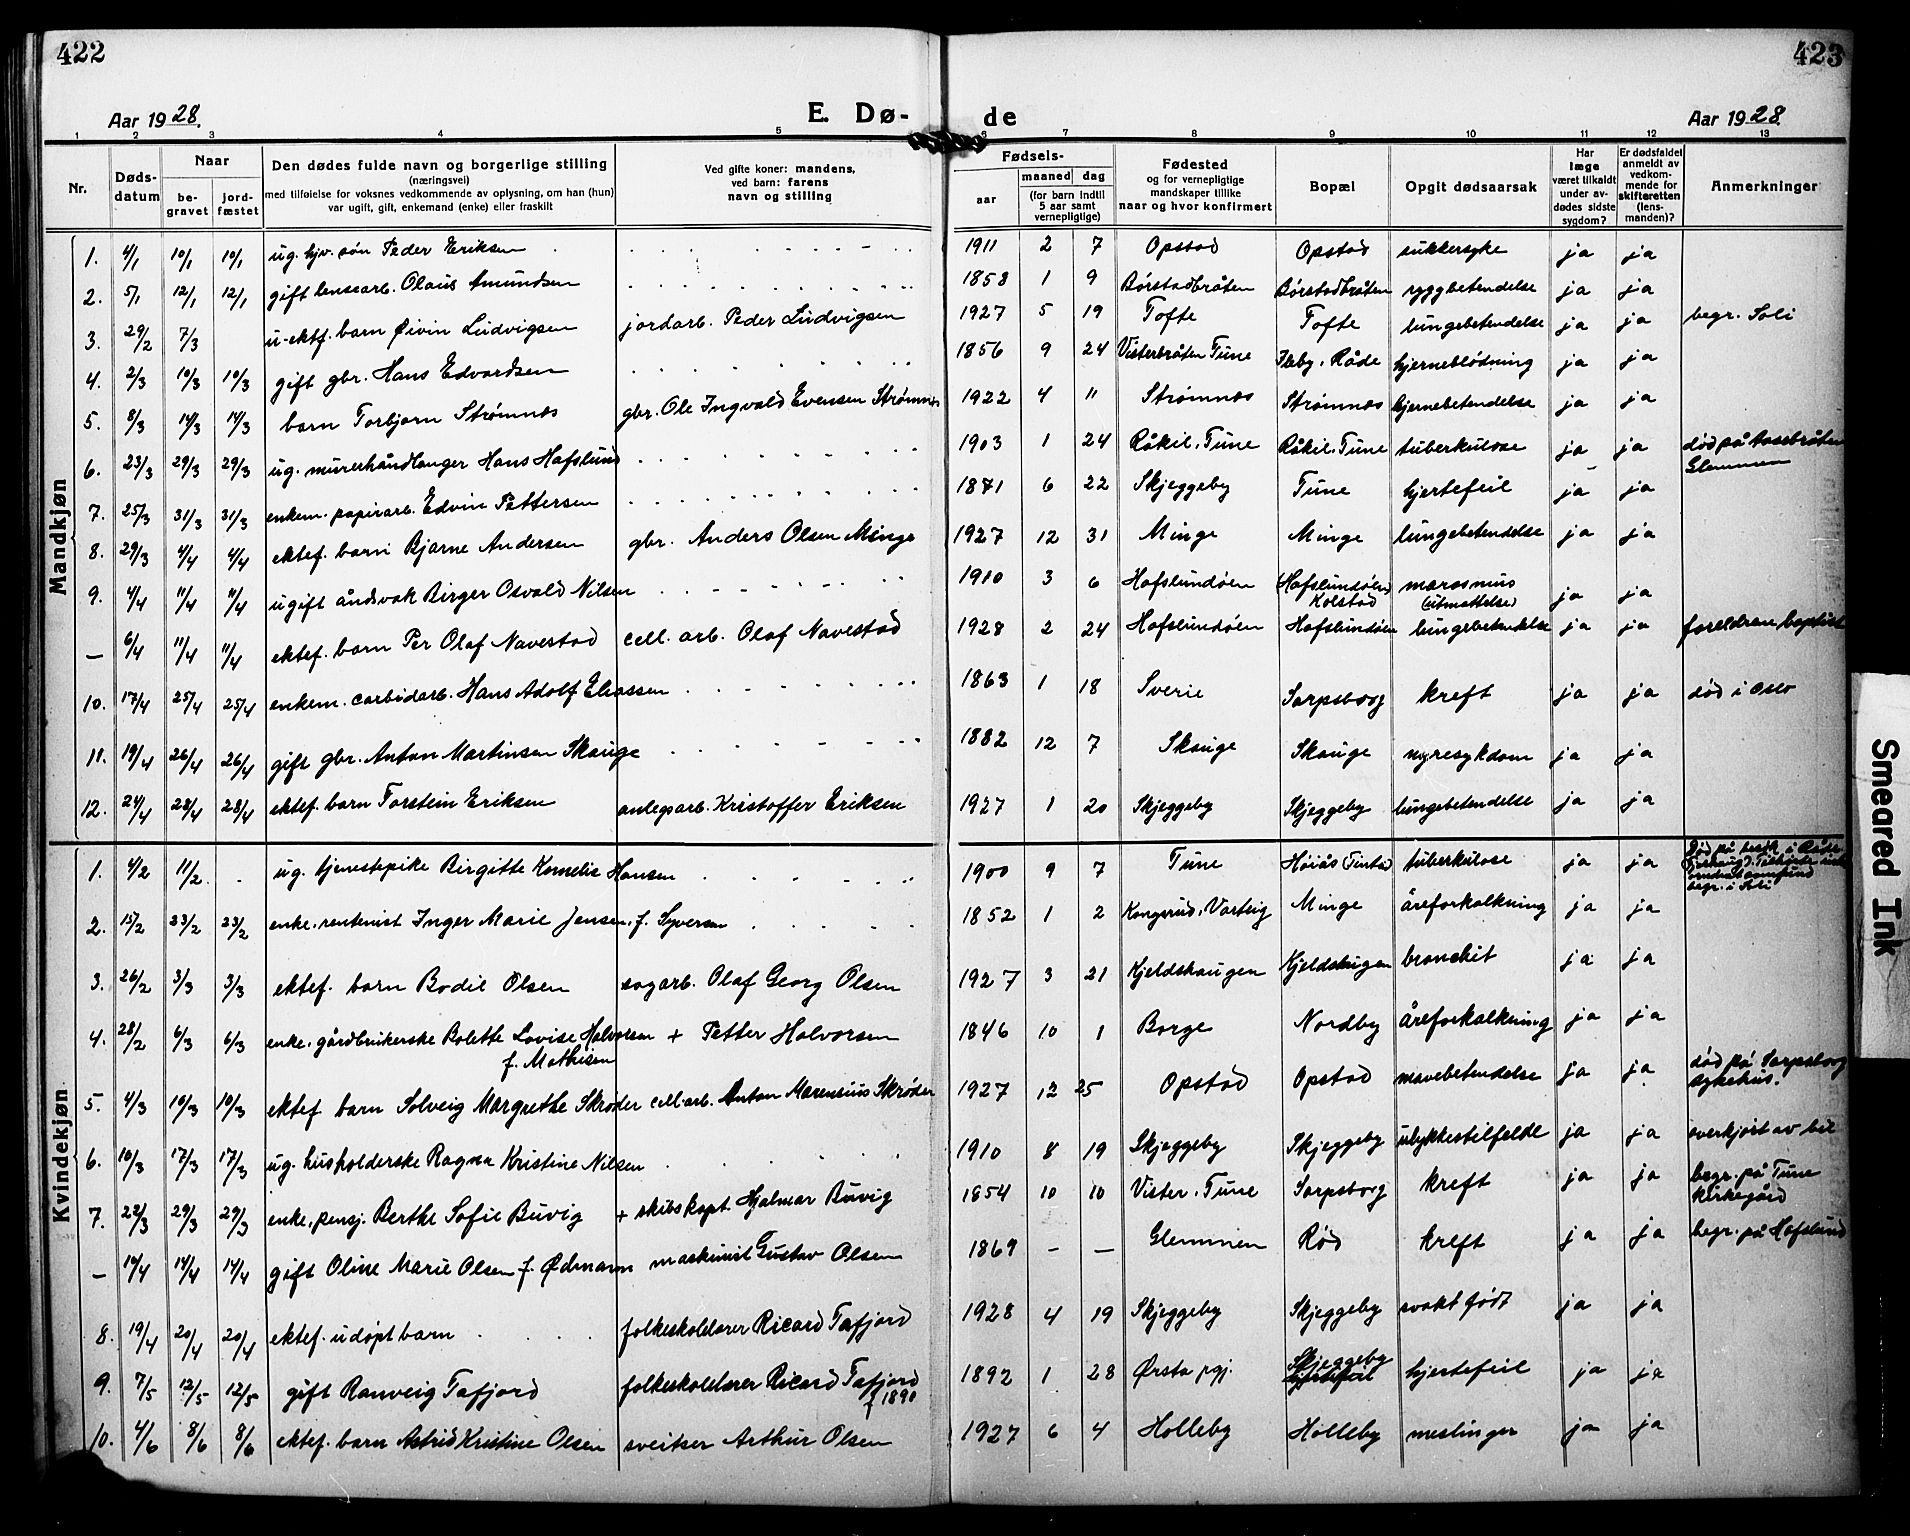 422
423
Aar 1928.
E. Dø-
de
Aar 1928
1 2 3 4 5 6 7 8 9 10 11 12 13
Nr.
Døds-
datum
Naar
be-
gravet
jord-
fæstet
Den dødes fulde navn og borgerlige stilling
(næringsvei)
med tilføielse for voksnes vedkommende av oplysning, om han (hun)
var ugift, gift, enkemand (enke) eller fraskilt
Ved gifte koner: mandens,
ved barn: farens
navn og stilling
Fødsels-
aar
maaned dag
(for barn indtil
5 aar samt
vernepligtige)
Fødested
og for vernepligtige
mandskaper tillike
naar og hvor konfirmert
Bopæl
Opgit dødsaarsak
Har
læge
været tilkaldt
under av-
dødes sidste
sygdom?
Er dødsfaldet
anmeldt av
vedkom-
mende for
skifteretten
(lens-
manden)?
Anmerkninger
Mandkjøn
1. 4/1 10/1 10/1 ug. hjv. søn Peder Eriksen 1911 2 7 Opstad Opstad sukkersyke ja ja
2. 5/1 12/1 12/1 gift lensearb. Olaus Amundsen 1858 1 9 Børstadbråten Børstadbråten ryggbetendelse ja ja
3. 29/2 7/3 u-ektf. barn Øivin Ludvigsen jordarb. Peder Ludvigsen 1927 5 19 Tofte Tofte lungebetendelse ja ja begr. Soli
4. 2/3 10/3 10/3 gift gbr. Hans Edvardsen 1856 9 24 Visterbråten Tune Råde hjerneblødning ja ja
5. 8/3 14/3 14/3 barn Torbjørn Strømnæs gbr. Ole Ingvald Evensen Strømnæs 1922 4 11 Strømnæs Strømnæs hjernebetendelse ja ja
6. 23/3 29/3 29/3 ug. murerhåndlanger Hans Hafslund 1903 1 24 Råkil. Tune Råkil. Tune tuberkulose ja ja død på
Glemmen
7. 25/3 31/3 31/3 enkem. papirarb. Edvin Pettersen 1871 6 22 Skjeggeby Tune hjertefeil ja ja
8. 29/3 4/4 4/4 ektef. barn Bjarne Andersen gbr. Anders Olsen Minge 1927 12 31 Minge Minge lungebetendelse ja ja
9. 4/4 11/4 11/4 ugift åndsvak Birger Osvald Nilsen 1910 3 6 Hafslundøen (Hafslundøen) marasmus ja ja
Kolstad (utmattelse)
— 6/4 11/4 11/4 ektef. barn Per Olaf Navestad cell. arb. Olaf Navestad 1928 2 24 Hafslundøen Hafslundøen lungebetendelse ja ja foreldrene baptist
10. 17/4 25/4 25/4 enkem. carbidarb. Hans Adolf Eliassen 1863 1 18 Sverie Sarpsborg kreft ja ja død i Oslo
11. 19/4 26/4 26/4 gift gbr. Anton Martinsen Skauge 1882 12 7 Skauge Skauge nyresykdom ja ja
12. 24/4 28/4 28/4 ektef. barn Torstein Eriksen anlegsarb. Kristoffer Eriksen 1927 1 20 Skjeggeby Skjeggeby lungebetendelse ja ja
Kvindekjøn
1. 4/2 11/2 - ug. tjenestepike Birgitte Kornelie Hansen 1900 9 7 Tune Høiås tuberkulose ja ja
begr. i Soli
2. 15/2 23/2 23/2 enke. rentenist Inger Marie Jensen, f. Syversen 1852 1 2 Kongsrud, Varteig Minge åreforkalkning ja ja
3. 26/2 3/3 3/3 ektef. barn Bodil Olsen sagarb. Olaf Georg Olsen 1927 3 21 Kjeldshaugen Kjeldshaugen bronchit ja ja
4. 28/2 6/3 6/3 enke. gårdbrukerske Bolette Lovise Halvorsen + Petter Halvorsen 1846 10 1 Borge Nordby åreforkalkning ja ja
f. Mathisen
5. 4/3 10/3 10/3 ektef barn Solveig Margrethe Skrøder cell. arb. Anton Marensius Skrøder 1927 12 25 Opstad Opstad mavebetendelse ja ja død på Sarpsborg
sykehus.
6. 10/3 17/3 17/3 ug. husholderske Ragna Kristine Nilsen 1910 8 19 Skjeggeby Skjeggeby ulykkestilfelde ja ja overkjørt av bil
7. 22/3 29/3 29/3 enke, pensj. Berthe Sofie Buvig + skibskapt. Hjalmar Buvig 1854 10 10 Vister. Tune Sarpsborg kreft ja ja begr. på Tune
kirkegård
— 14/4 14/4 gift Oline Marie Olsen f. Ødmann maskinist Gustav Olsen 1869 — — Glemmen Rød kreft ja ja begr. på Hafslund
8. 19/4 20/4 20/4 ektef. udøpt barn folkeskolelærer Ricard Tafjord 1928 4 19 Skjeggeby Skjeggeby svakt født ja ja
9. 7/5 12/5 12/5 gift Ranveig Tafjord folkeskolelærer Ricard Tafjord 1892 1 28 Ørsta pgj. Skjeggeby hjertefeil ja ja
f 1890
10. 4/6 8/6 8/6 ektef. barn Astrid Kristine Olsen sveitser Arthur Olsen 1927 6 4 Holleby Holleby meslinger ja ja
Smeared Ink